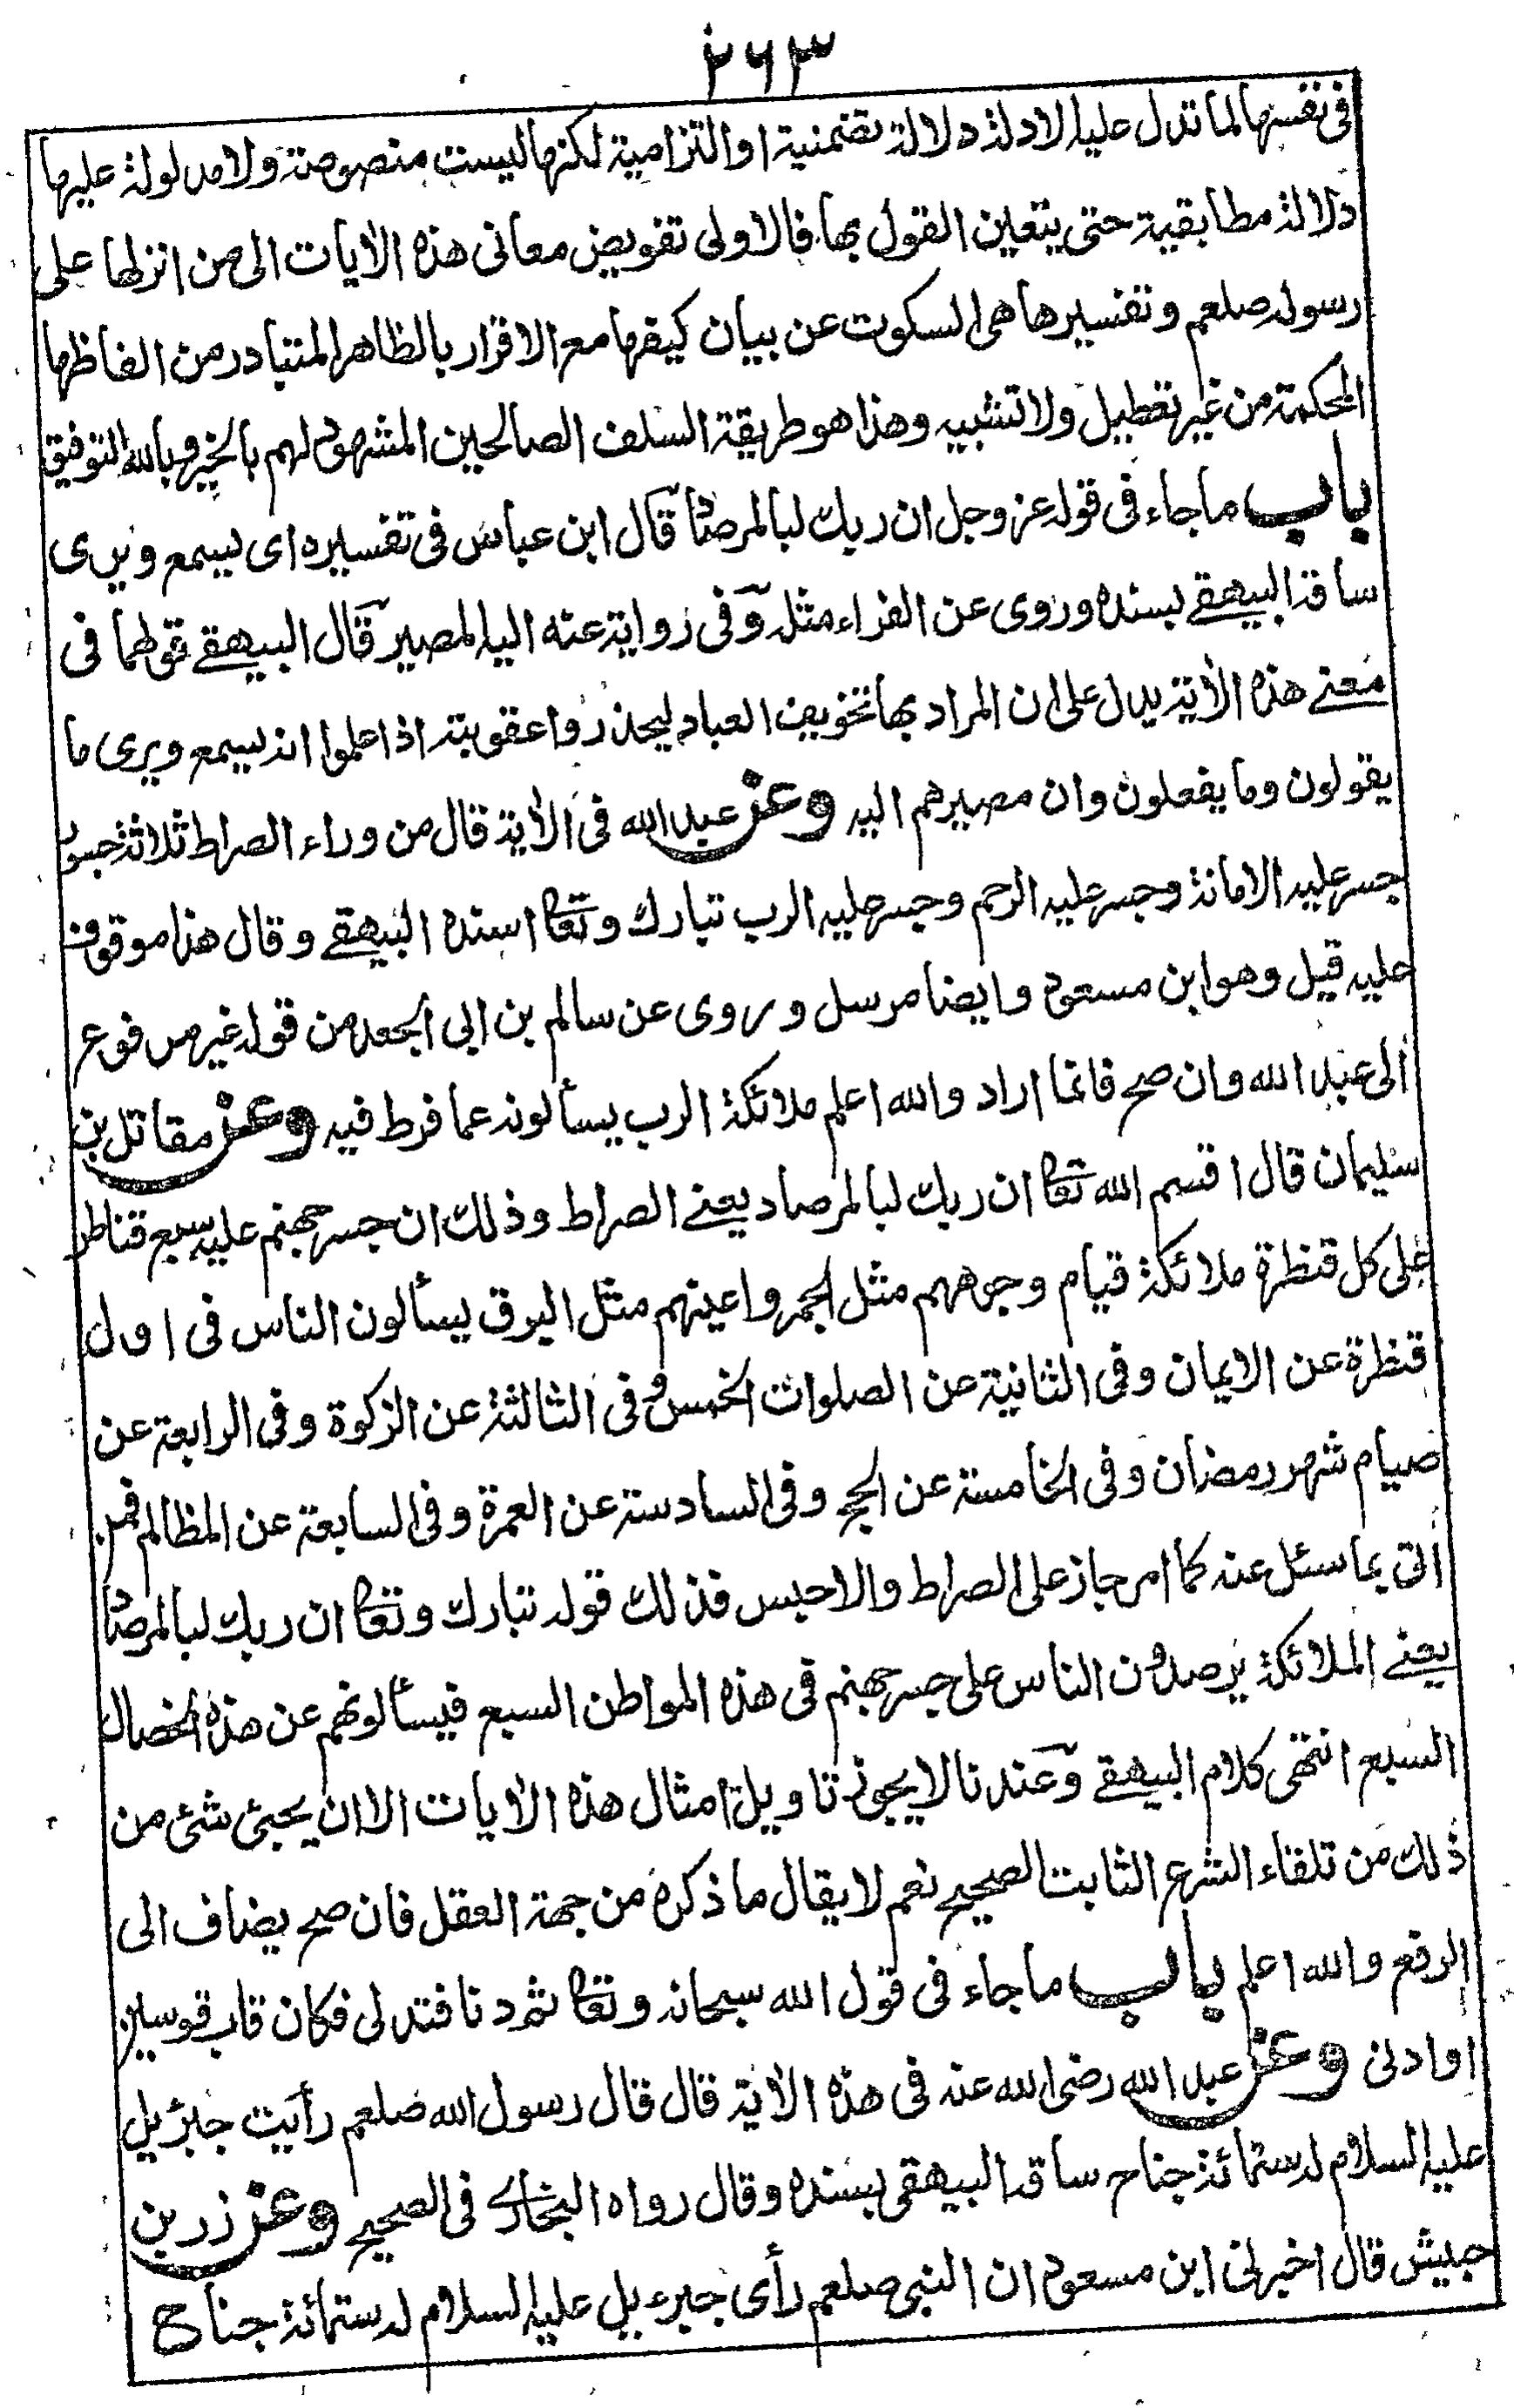 ٢٦٣
فى نفسها لما تدل عليه الادلة دلالة تضمنية او التزامية لكنها ليست منصوصة ولا مدلولة عليها
دلالة مطابقية حتى يتعين القول بها فالاولى تفويض معانى هذه الآيات الى من انزلها على
رسوله صلعم وتفسيرها هى السكوت عن بيان كيفها مع الاقرار بالظاهر المتبادر من الفاظها
المحكمة من غير تعطيل ولا تشبيه وهذا هو طريقة السلف الصالحين المشهود لهم بالخير وبالله التوفيق
باب ماجاء فى قوله عز وجل ان ربك لبالمرصاد قال ابن عباس فى تفسيره اى يسمع ويرى
ساقه البيهقے بسنده وروى عن الفراء مثله وفى رواية عنه اليه المصير قال البيهقے قولهما فى
معنے هذه الآية يدل على ان المراد بها تخويف العباد ليحذروا عقوبته اذا علموا انه يسمع ويرى ما
يقولون وما يفعلون وان مصيرهم اليه وعن عبد الله فى الآية قال من وراء الصراط ثلاثة جسور
جسر عليه الامانة وجسر عليه الرحم وجسر عليه الرب تبارك وتعا اسنده البيهقے وقال هذا موقوف
عليه قيل وهو ابن مسعود وايضا مرسل وروى عن سالم بن ابى الجعد من قوله غير مرفوع
الى عبد الله وان صح فانما اراد والله اعلم ملائكة الرب يسألونه عما فرط فيه وعن مقاتل بن
سليمان قال اقسم الله تعا ان ربك لبالمرصاد يعنے الصراط وذلك ان جسر جهنم عليه سبع قناطر
على كل قنظرة ملائكة قيام وجوههم مثل الجمر واعينهم مثل البرق يسألون الناس فى اول
قنظرة عن الايمان وفى الثانية عن الصلوات الخمس وفى الثالثة عن الزكوة وفى الرابعة عن
صيام شهر رمضان وفى الخامسة عن الحج وفى السادسة عن العمرة وفى السابعة عن المظالم فمن
اتى بما سئل عنه كما امر جاز على الصراط والا حبس فذلك قوله تبارك وتعا ان ربك لبالمرصاد
يعنے الملائكة يرصدون الناس على جسر جهنم فى هذه المواطن السبع فيسألونهم عن هذه الخصال
السبع انتهى كلام البيهقے وعندنا لا يجوز تاويل امثال هذه الآيات الا ان يجئ شئ من
ذلك من تلقاء الشرع الثابت الصحيح نعم لا يقال ما ذكره من جهة العقل فان صح يضاف الى
الرفع والله اعلم باب ماجاء فى قول الله سبحانه وتعا ثم دنا فتدلى فكان قاب قوسين
او ادنى وعن عبد الله رضى الله عنه فى هذه الآية قال قال رسول الله صلعم رأيت جبرئيل
عليه السلام له ستمائة جناح ساقه البيهقى بسنده وقال رواه البخارى فى الصحيح وعن زر بن
حبيش قال اخبرنى ابن مسعود ان النبى صلعم رأى جبرءيل عليه السلام له ستمائة جناح